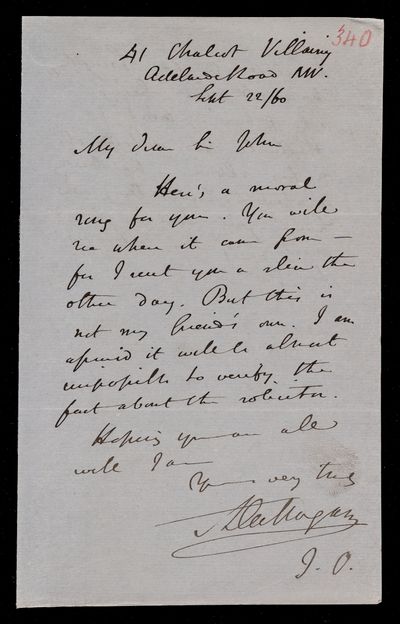 340
41 Chalcot Villas
Adelaide Road NW.
Sept 22/60
My dear Sir John
Here's a moral
ring for you. You will
see where it came from —
for I sent you a slice the
other day. But this is
not my friend's own. I am
afraid it will be almost
impossible to verify the
fact about the solicitor.
Hoping you are all
well I am
Yours very truly
ADeMorgan